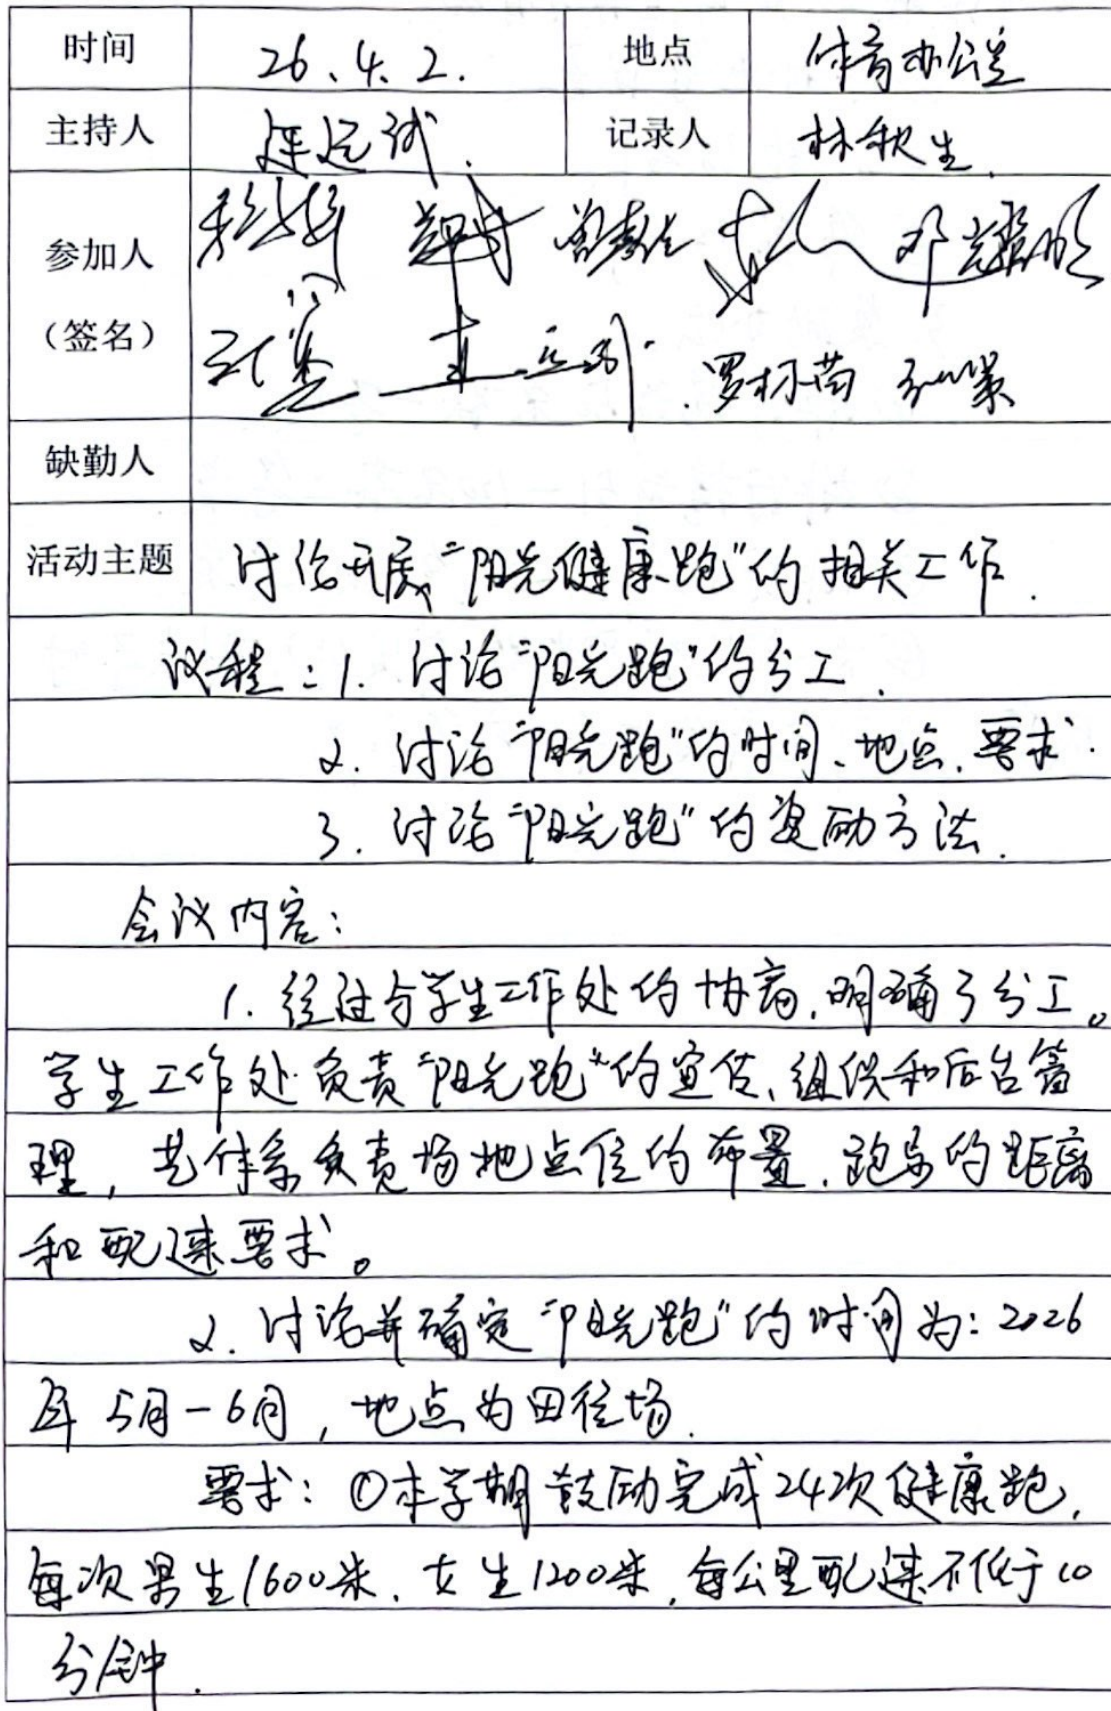 时间 26.4.2. 地点 体育办公室
主持人 记录人 林秋生
参加人
（签名） 邓耀明
罗林茵
缺勤人
活动主题 讨论开展“阳光健康跑”的相关工作.
议程：1. 讨论“阳光跑”的分工.
2. 讨论“阳光跑”的时间、地点、要求.
3. 讨论“阳光跑”的奖励方法.
会议内容：
1. 经过与学生工作处的协商，明确了分工。
学生工作处负责“阳光跑”的宣传、组织和后台管
理，艺体系负责场地点位的布置、跑步的距离
和配速要求。
2. 讨论并确定“阳光跑”的时间为：2026
年5月-6月，地点为田径场.
要求：①本学期鼓励完成24次健康跑，
每次男生1600米、女生1200米，每公里配速不低于10
分钟.